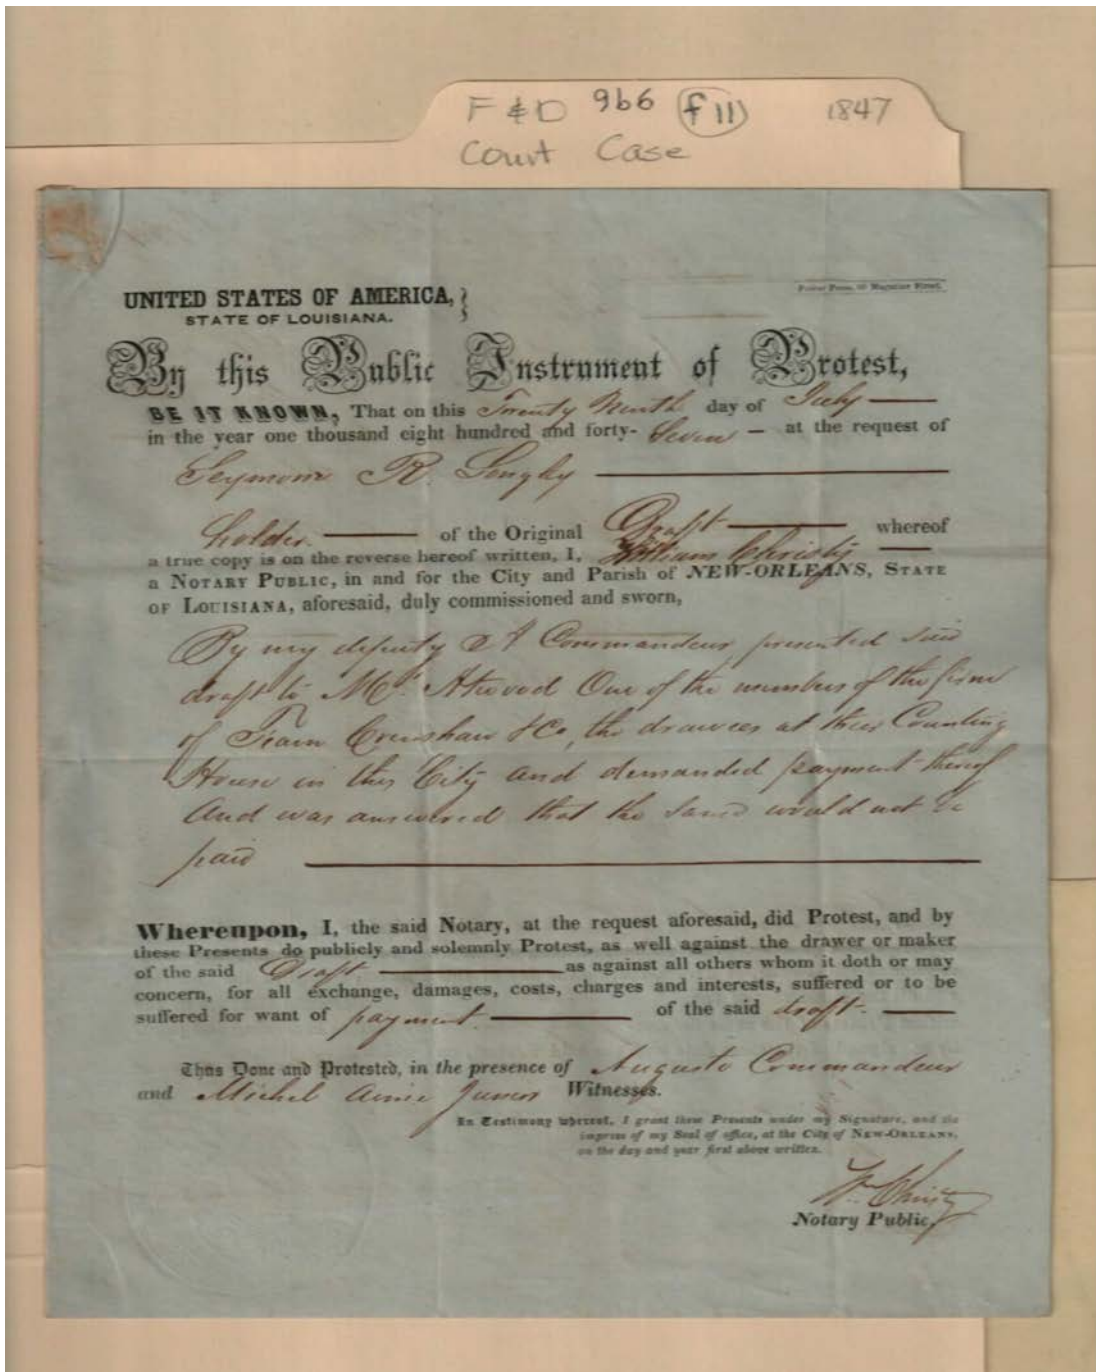 F & D 966 f 11 1847
Court Case
UNITED STATES OF AMERICA,
STATE OF LOUISIANA.
Power Press, Magazine Street.
By this Public Instrument of Protest,
BE IT KNOWN, That on this Twenty Ninth day of July
in the year one thousand eight hundred and forty- Seven - at the request of
Seymour R.
holder of the Original Draft whereof
a true copy is on the reverse hereof written, I, William Christy
a NOTARY PUBLIC, in and for the City and Parish of NEW-ORLEANS, STATE
OF LOUISIANA, aforesaid, duly commissioned and sworn,
By my deputy A Commandeur presented said
draft to Mr. Atwood One of the members of the firm
of Crenshaw & Co, the drawees at their Counting
House in this City and demanded payment thereof
And was answered that the same would not be
paid
Whereupon, I, the said Notary, at the request aforesaid, did Protest, and by
these Presents do publicly and solemnly Protest, as well against the drawer or maker
of the said Draft as against all others whom it doth or may
concern, for all exchange, damages, costs, charges and interests, suffered or to be
suffered for want of payment of the said draft.
Thus Done and Protested, in the presence of Auguste Commandeur
and Michel Aime Junior Witnesses.
In Testimony whereof, I grant these Presents under my Signature, and the
impress of my Seal of office, at the City of NEW-ORLEANS,
on the day and year first above written.
Wm. Christy
Notary Public,